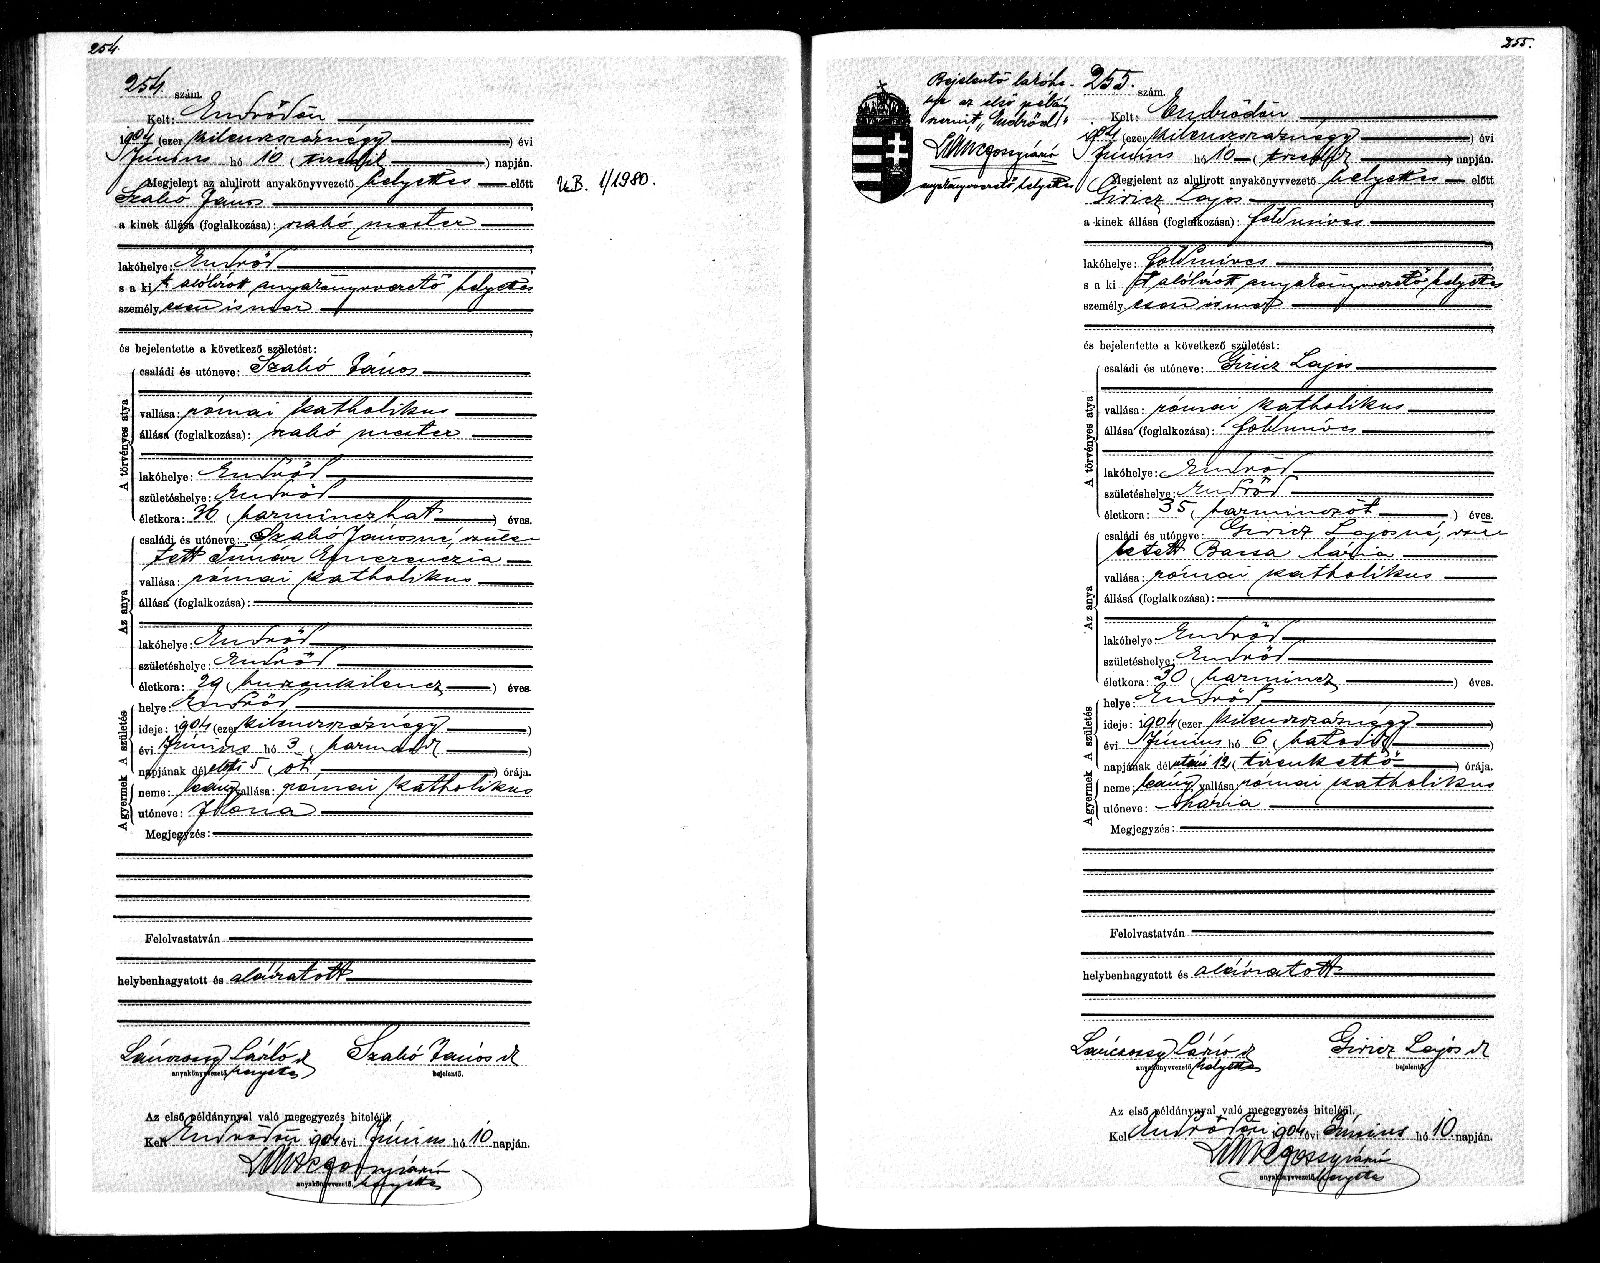 254.
254. szám.
Kelt: Endrődön
1904 (ezer kilenczszáznégy) évi
Június hó 10 (tizedik) napján.
Megjelent az alulirott anyakönyvvezető helyettes előtt
Szabó János
a kinek állása (foglalkozása): szabó mester
lakóhelye: Endrőd
s a ki t alólírott anyakönyvvezető helyettes
személyesen ismer
és bejelentette a következő születést:
A törvényes atya
családi és utóneve: Szabó János
vallása: római katholikus
állása (foglalkozása): szabó mester
lakóhelye: Endrőd
születéshelye: Endrőd
életkora: 36 (harminczhat) éves.
Az anya
családi és utóneve: Szabó Jánosné, szüle-
tett Tímár Emerenczia
vallása: római katholikus
állása (foglalkozása):
lakóhelye: Endrőd
születéshelye: Endrőd
életkora: 29 (huszonkilencz) éves
A születés
helye: Endrőd
ideje: 1904 (ezer kilenczszáznégy)
évi Június hó 3 (harmadik)
napjának délelőtti 5 (öt) órája.
A gyermek
neme: leány vallása: római katholikus
utóneve: Ilona
Megjegyzés:
Felolvastatván
helybenhagyatott és aláiratott
Lánczossy László sk Szabó János sk
anyakönyvvezető helyettes bejelentő.
Az első példánynyal való megegyezés hiteléül.
Kelt Endrődön 1904 évi Június hó 10 napján.
anyakönyvvezető helyettes
U.B. 1/1980.
255.
Bejelentő lakóhe-
lye az első példány
szerint "Endrőd"
anyakönyvvezető helyettes
255. szám.
Kelt: Endrődön
1904 (ezer kilenczszáznégy) évi
Június hó 10 (tizedik) napján.
Megjelent az alulirott anyakönyvvezető helyettes előtt
Giricz Lajos
a kinek állása (foglalkozása): földmíves
lakóhelye: földmíves
s a ki t alólírott anyakönyvvezető helyettes
személyesen ismer
és bejelentette a következő születést:
A törvényes atya
családi és utóneve: Giricz Lajos
vallása: római katholikus
állása (foglalkozása): földmíves
lakóhelye: Endrőd
születéshelye: Endrőd
életkora: 35 (harminczöt) éves.
Az anya
családi és utóneve: Giricz Lajosné, szü-
letett Barsa Mária
vallása: római katholikus
állása (foglalkozása):
lakóhelye: Endrőd
születéshelye: Endrőd
életkora: 30 (harmincz) éves.
A születés
helye: Endrőd
ideje: 1904 (ezer kilenczszáznégy)
évi Június hó 6 (hatodik)
napjának délutáni 12 (tizenkettő) órája.
A gyermek
neme leány, vallása: római katholikus
utóneve: Mária
Megjegyzés:
Felolvastatván
helybenhagyatott és aláiratott
Lánczossy László sk Giricz Lajos sk
anyakönyvvezető helyettes bejelentő.
Az első példánynyal való megegyezés hiteléül.
Kelt Endrődön 1904 évi Június hó 10 napján.
anyakönyvvezető helyettes